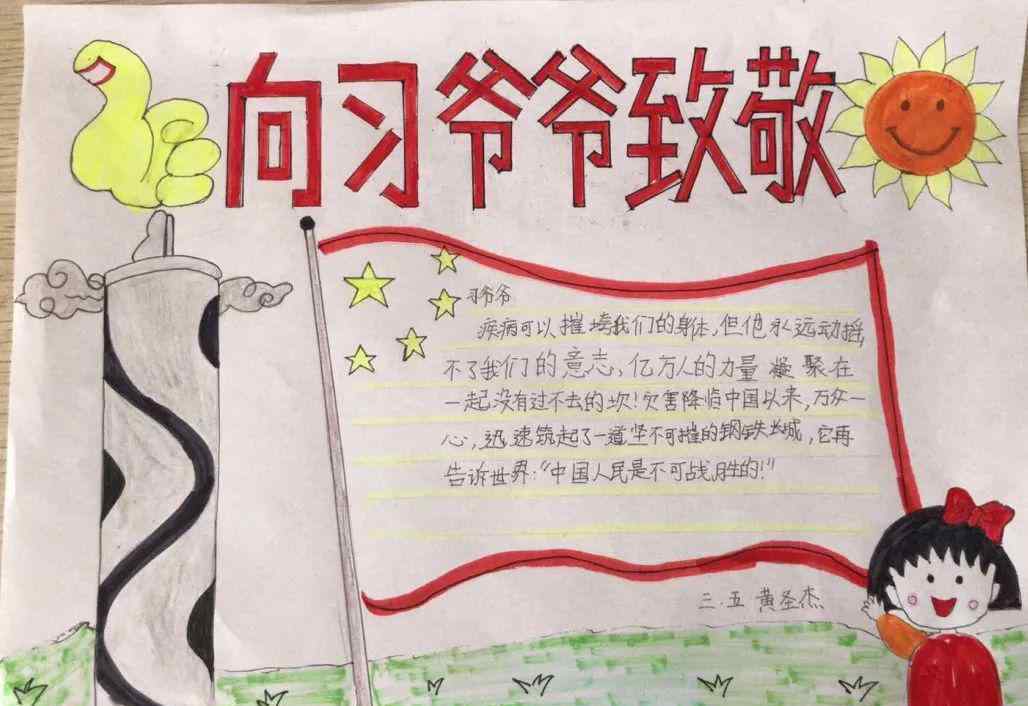 向习爷爷致敬
习爷爷
疾病可以摧垮我们的身体,但他永远动摇,
不了我们的意志,亿万人的力量凝聚在
一起没有过不去的坎!灾害降临中国以来,万众一
心,迅速筑起了一道坚不可摧的钢铁长城,它再
告诉世界:“中国人民是不可战胜的!”
三.五 黄圣杰